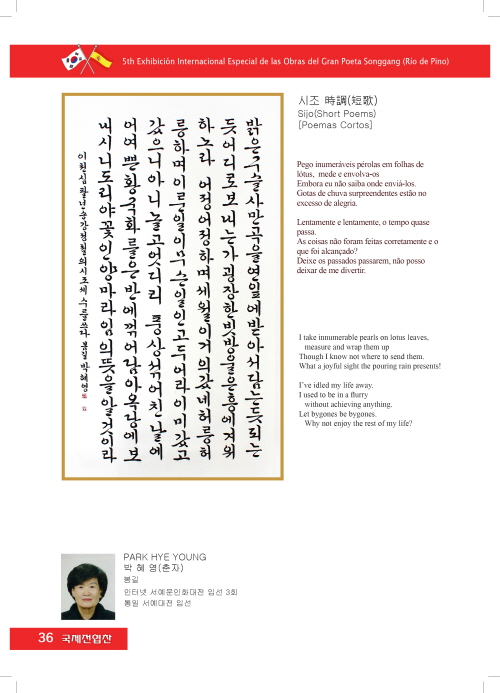 5th Exhibición Internacional Especial de las Obras del Gran Poeta Songgang (Río de Pino)
시조 時調(短歌)
Sijo(Short Poems)
[Poemas Cortos]
밝은구슬사만곡을연잎에받아서담는듯되는
듯어디로보내는가굉장한빗방울은흥에겨워
하노라 어정어정하며세월이거의갔네허릉허
릉하며이룩일이무슨일인고두어라이미갔고
갔으니아니놀고엇더리 풍상섞어친날에
어여쁜황국화를은반에꺾어담아옥당에보
내시니도리야꽃인양마라임의뜻을알것이라
이천십팔년송강정철의시조세수를쓰다 봄길 박혜영
Pego inumeráveis pérolas em folhas de
lótus, mede e envolva-os
Embora eu não saiba onde enviá-los.
Gotas de chuva surpreendentes estão no
excesso de alegria.
Lentamente e lentamente, o tempo quase
passa.
As coisas não foram feitas corretamente e o
que foi alcançado?
Deixe os passados passarem, não posso
deixar de me divertir.
I take innumerable pearls on lotus leaves,
measure and wrap them up
Though I know not where to send them.
What a joyful sight the pouring rain presents!
I've idled my life away.
I used to be in a flurry
without achieving anything.
Let bygones be bygones.
Why not enjoy the rest of my life?
PARK HYE YOUNG
박 혜 영(춘자)
봄길
인터넷 서예문인화대전 입선 3회
통일 서예대전 입선
36 국제전엽산